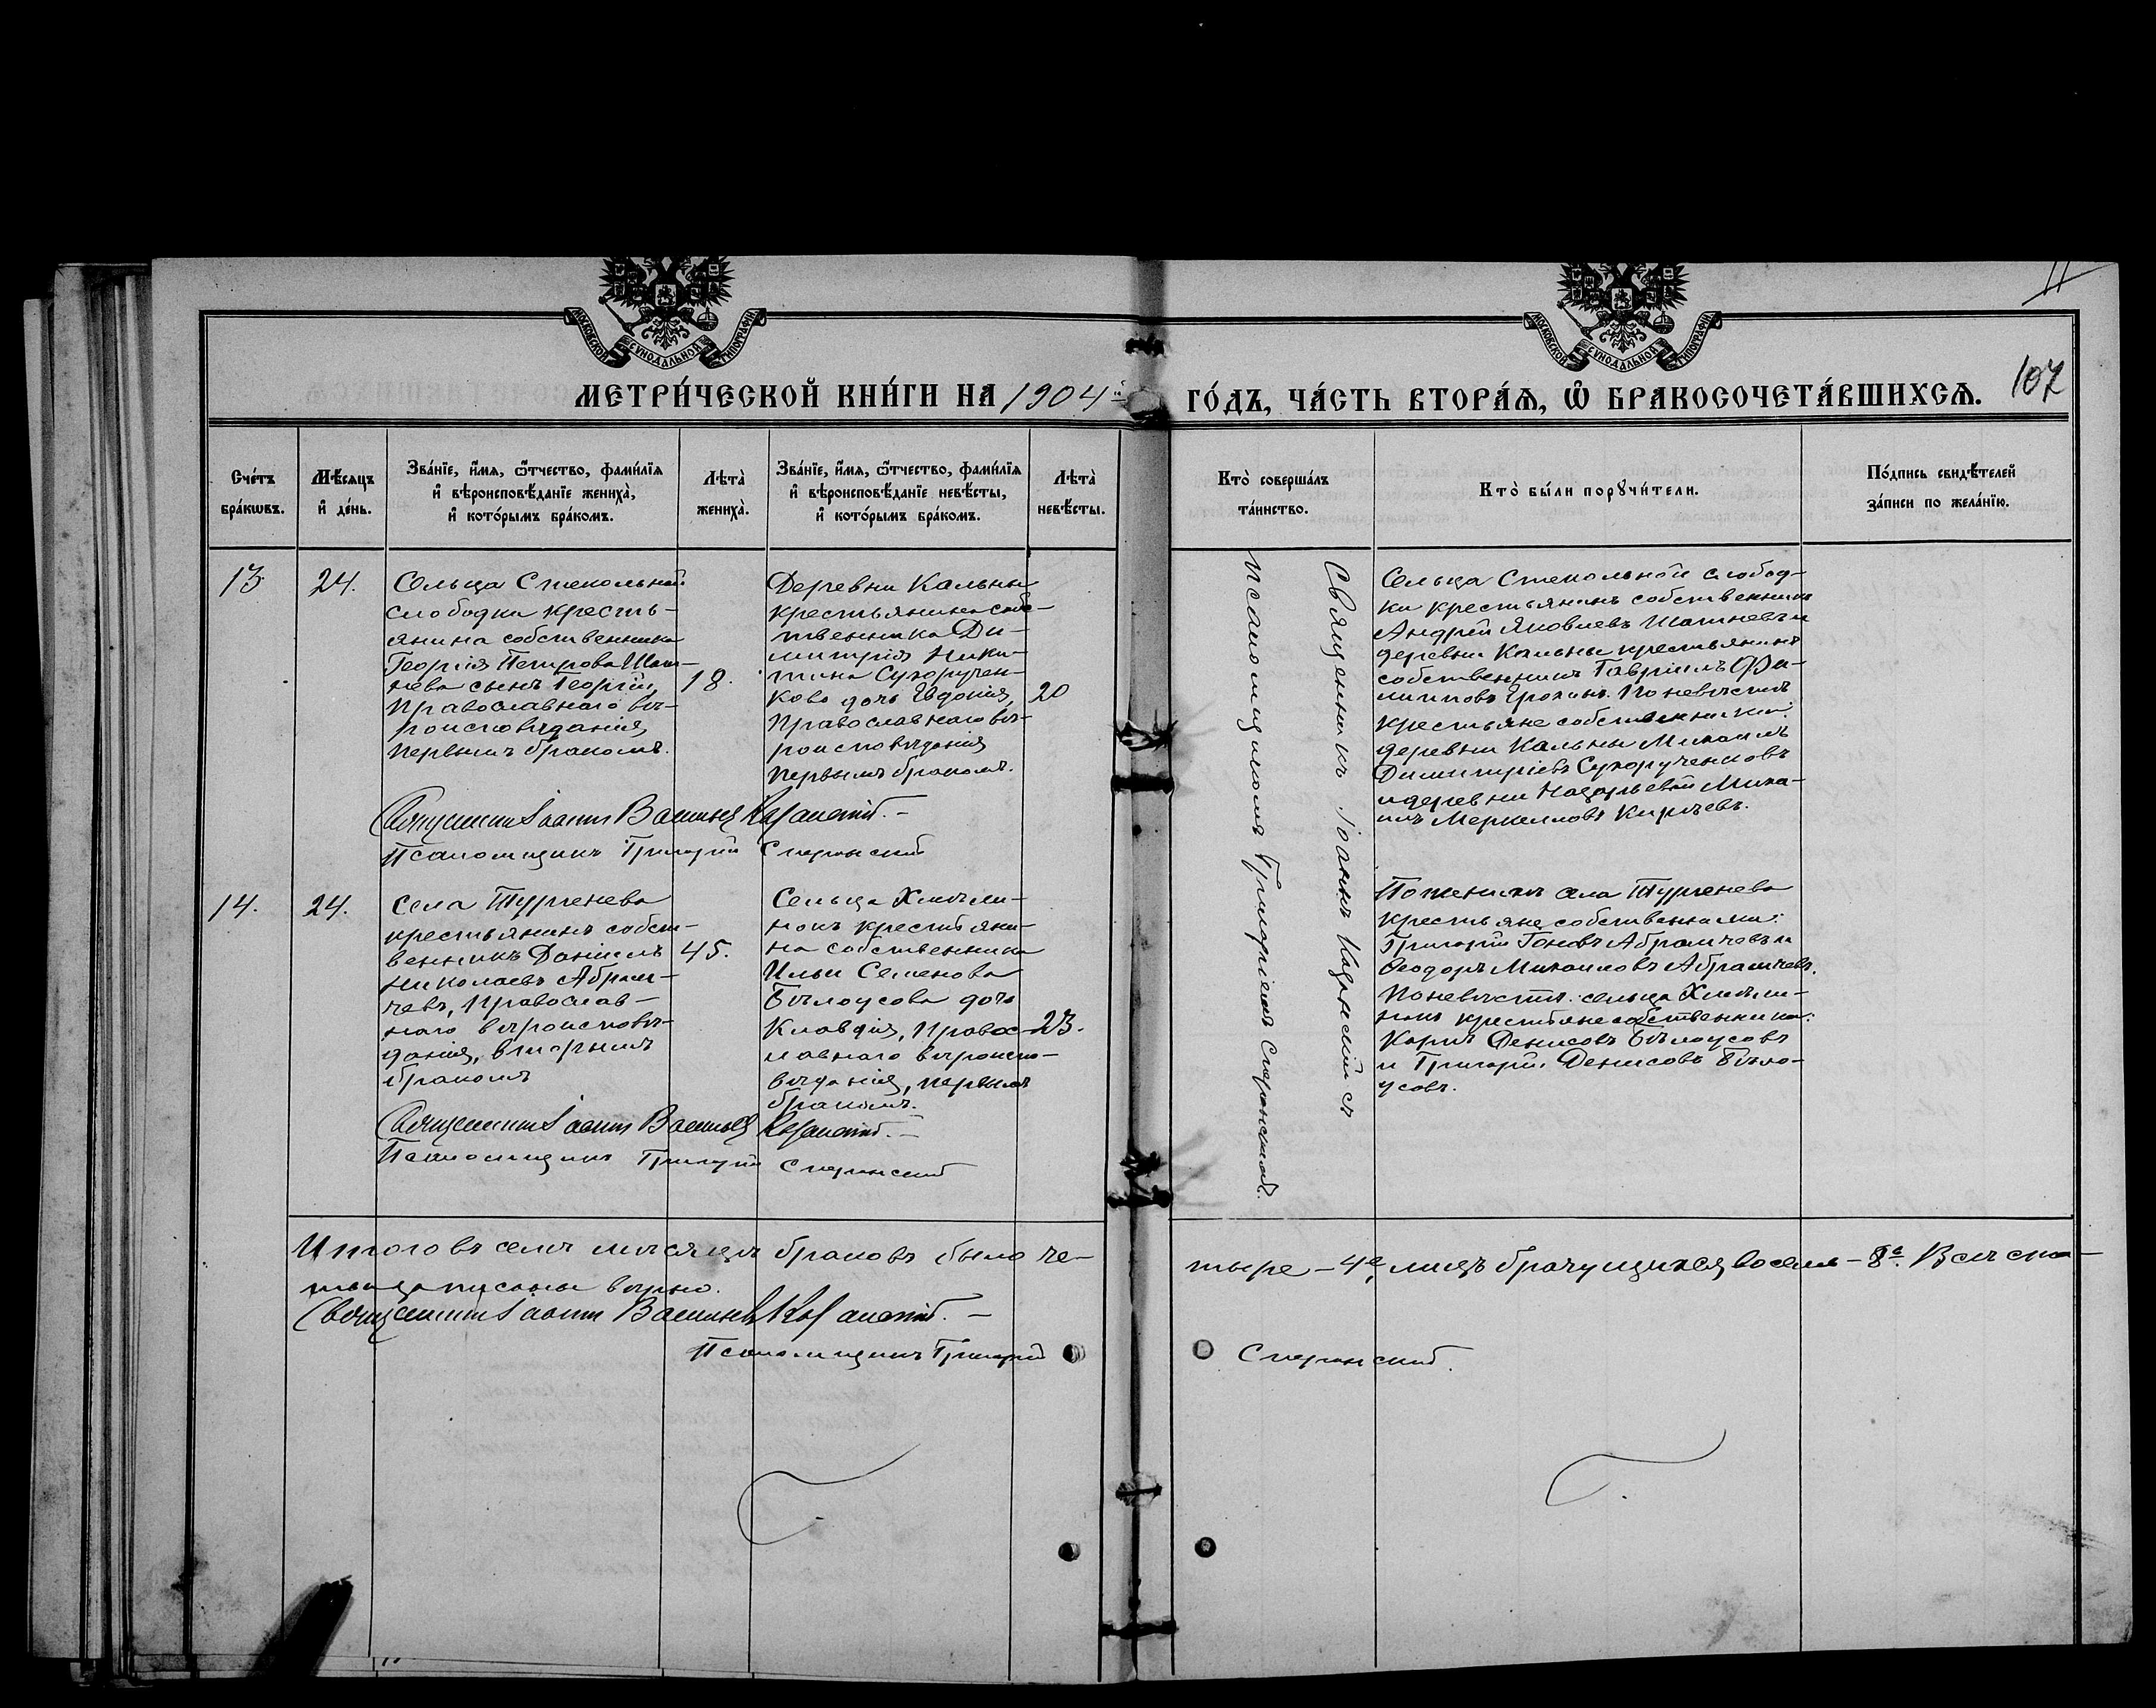 МОСКОВСКОЙ СѴНОДАЛЬНОЙ ТИПОГРАФІИ
МОСКОВСКОЙ СѴНОДАЛЬНОЙ ТИПОГРАФІИ
11
МЕТРИ́ЧЕСКОЙ КНИ́ГИ НА 1904й
ГО́ДЪ, ЧА́СТЬ ВТОРА́Ѧ, Ѽ БРАКОСОЧЕТА́ВШИХСѦ.
107
Сче́тъ
бра́кѡвъ.
Мѣ́сѧцъ
и҆ де́нь.
Зва́нїе, и҆́мѧ, ѻ҆́тчество, фами́лїѧ
и҆ вѣроисповѣ́данїе жениха̀,
и҆ кото́рымъ бра́комъ.
Лѣ́та
жениха̀.
Зва́нїе, и҆́мѧ, ѻ҆́тчество, фами́лїѧ
и҆ вѣроисповѣ́данїе невѣ́сты,
и҆ кото́рымъ бра́комъ.
Лѣ́та
невѣ́сты.
Кто̀ соверша́лъ
та́инство.
Кто̀ бы́ли порꙋчи́тели.
По́дпись свидѣ́телей
за́писи по жела́нїю.
13
24.
Сельца Стекольной
слободки кресть-
янина собственника
Георгія Петрова Шат-
нева сынъ Георгій,
православнаго вѣ-
роисповѣданія
первымъ бракомъ.
18.
Деревни Кальны
крестьянина соб-
твенника Ди-
митрія Ники-
тина Сухоручен-
кова дочь Евдокія,
православнаго вѣ-
роисповѣданія
первымъ бракомъ.
20
Священникъ Іоаннъ Казанскій съ
псаломщикомъ Григоріемъ Сперанскимъ.
Сельца Стекольной слобод-
ки крестьянинъ собственникъ
Андрей Яковлевъ Шатневъ и
деревни Кальны крестьянинъ
собственникъ Гавріилъ Фи-
липповъ Ерохинъ. По невѣстѣ
крестьяне собственники:
деревни Кальны Михаилъ
Димитріевъ Сухорученковъ
и деревни Миха-
илъ Меркуловъ
Священникъ Іоаннъ Васильевъ Казанскій.-
Псаломщикъ Григорій Сперанскій
14.
24.
Села Тургенева
крестьянинъ собст-
венникъ Даніилъ
Николаевъ Абрам-
чевъ, православ-
наго вѣроисповѣ-
данія, вторымъ
бракомъ
45.
Сельца Хмѣли-
нокъ крестьяни-
на собственника
Ильи Семенова
Бѣлоусова дочь
Клавдія, правос-
лавнаго вѣроиспо-
вѣданія, первымъ
бракомъ.
23.
По женихѣ села Тургенева
крестьяне собственники:
Григорій Абрамчевъ и
Ѳеодоръ Михаиловъ Абрамчевъ.
По невѣстѣ: сельца Хмѣли-
нокъ крестьяне собственники:
Карпъ Денисовъ Бѣлоусовъ
и Григорій Денисовъ Бѣло-
усовъ.
Священникъ Іоаннъ Васильевъ Казанскій.-
Псаломщикъ Григорій Сперанскій
Итого въ семъ мѣсяцѣ браковъ было че-
тыре - 4е, лицъ брачущихся восемь - 8. Всѣ ста-
тьи записаны вѣрно.
Священникъ Іоаннъ Васильевъ Казанскій.-
Псаломщикъ Григорій Сперанскій.